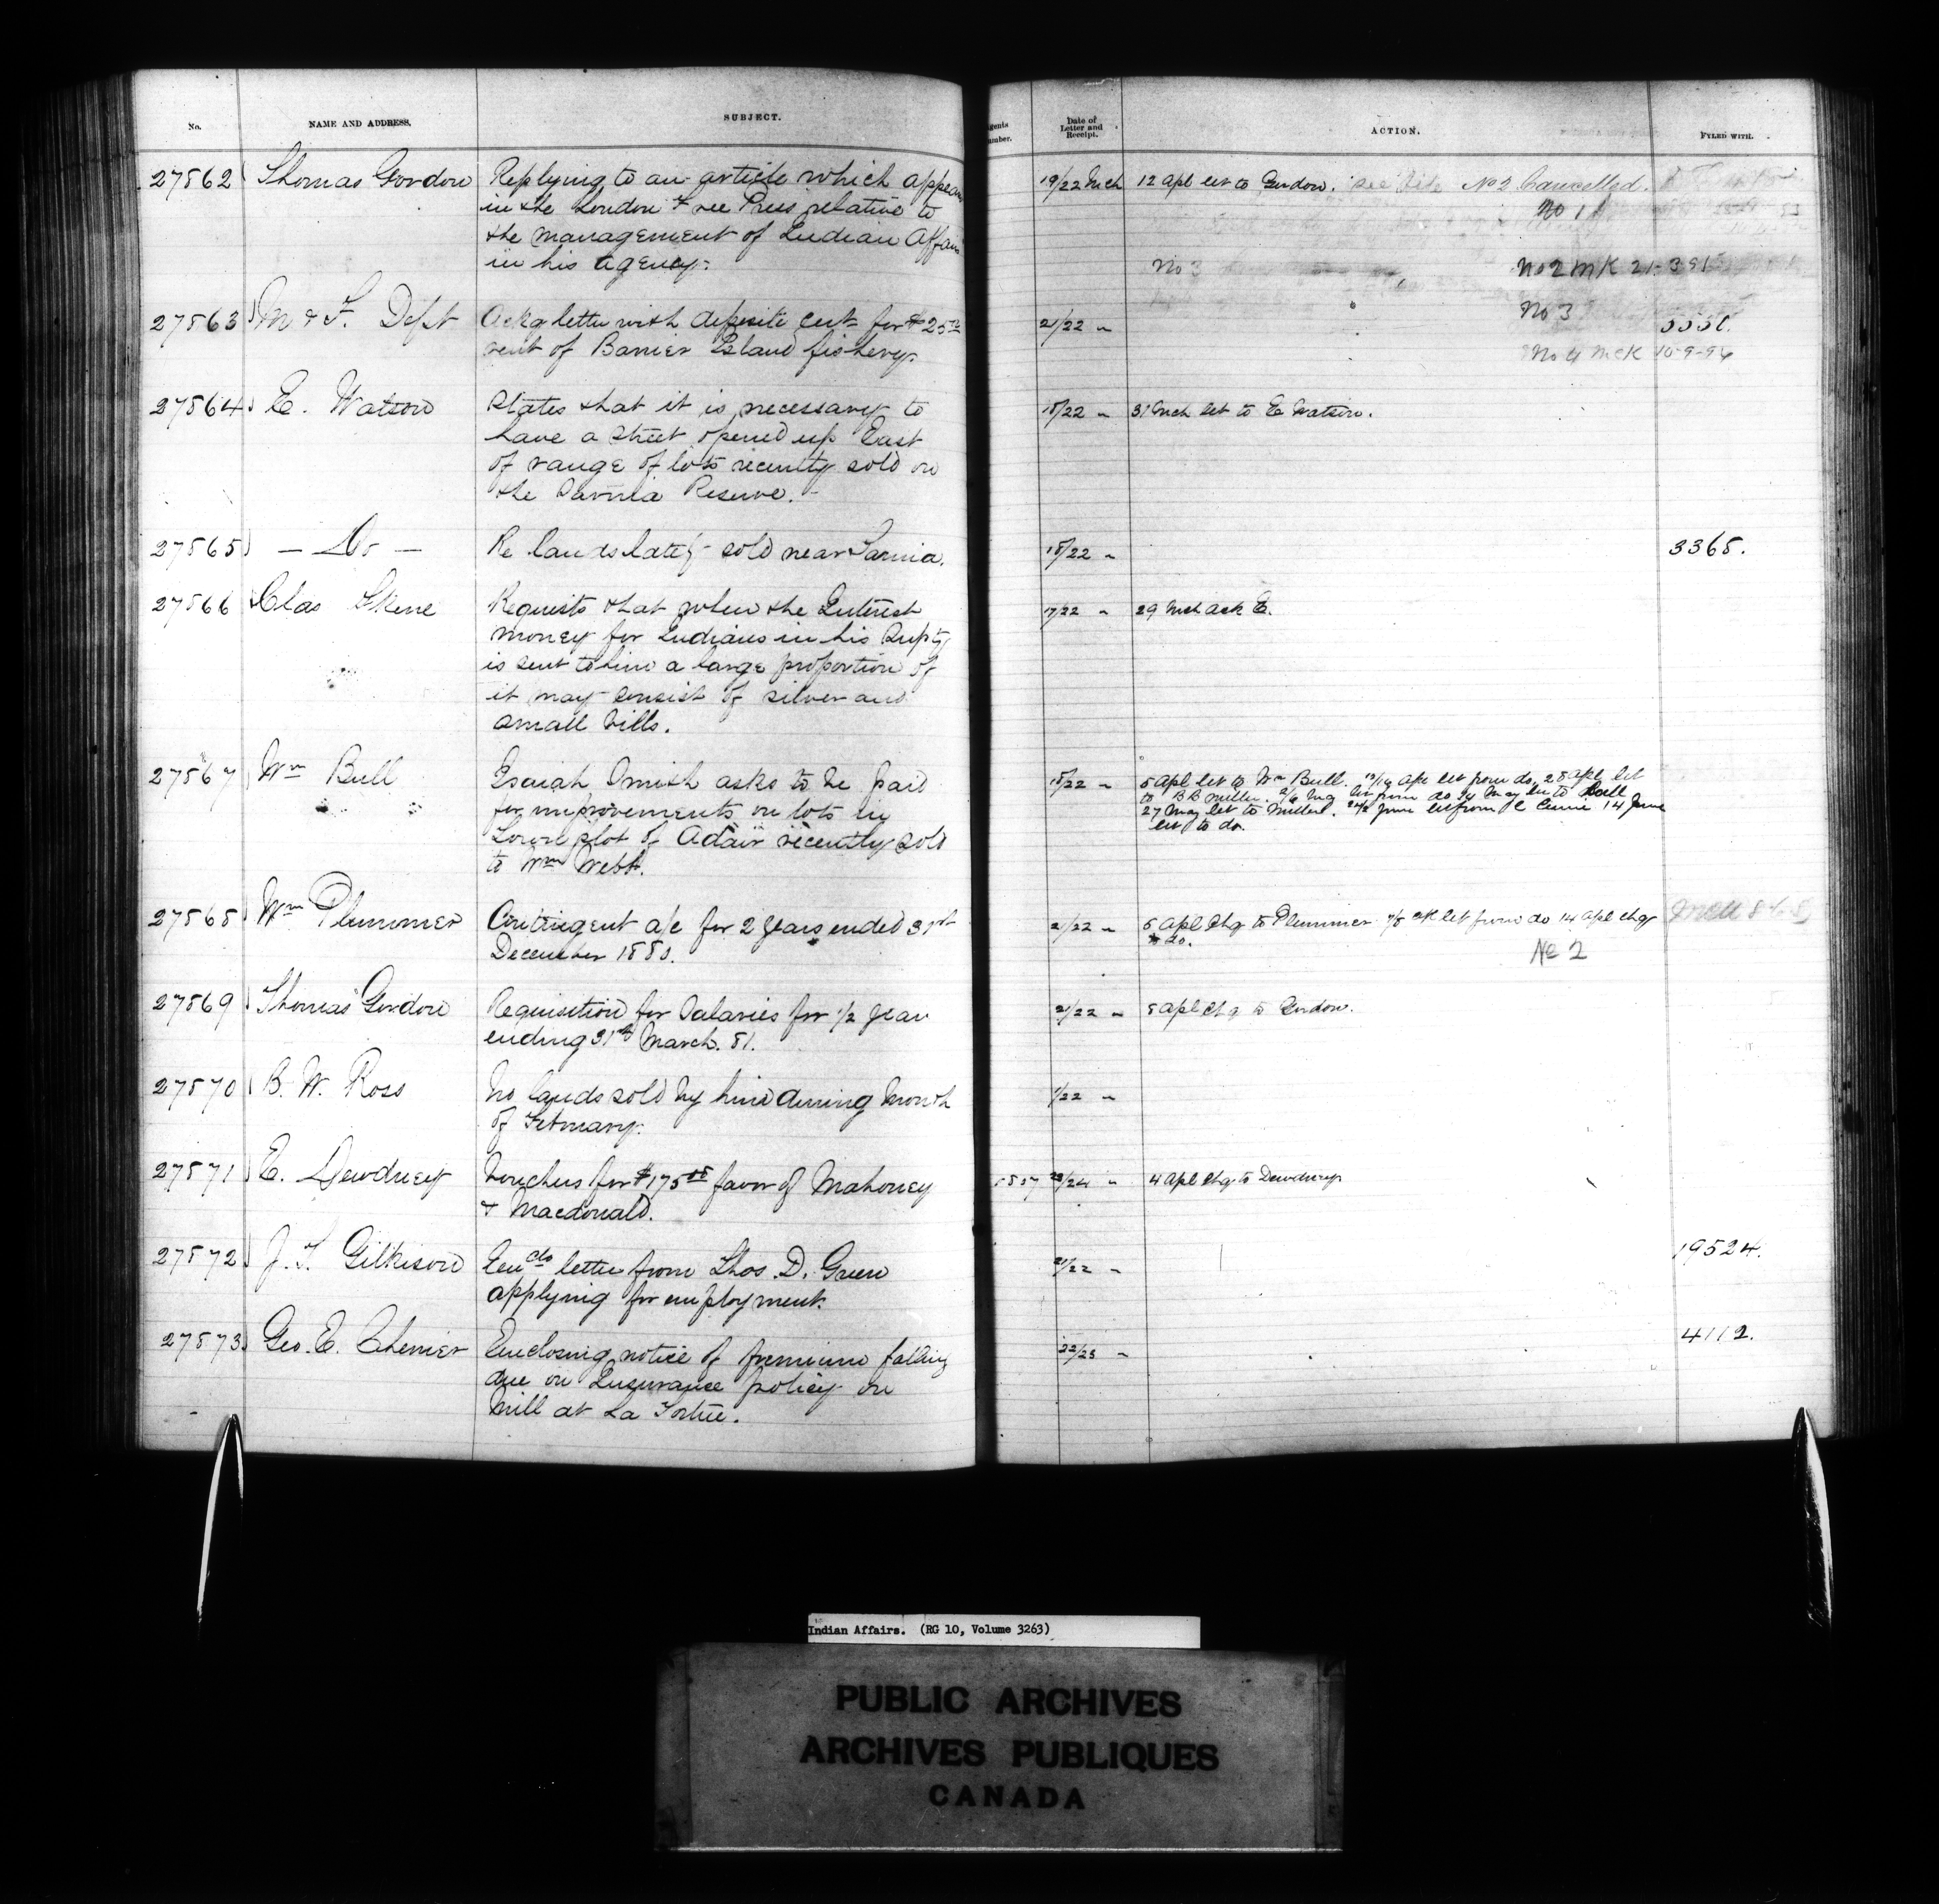 No.
NAME AND ADDRESS.
SUBJECT.
27862 Thomas Gordon
Replying to an article which appears
in the London Free Press relative to
the management of Indian Affairs
in his agency.
27863 M & F. Dept
Ackg letter with deposite cert for $25
rent of Barrier Island fishery.
27864 E. Watson
States that it is necessary to
have a street opened up East
of range of lots recently sold on
the Sarnia Reserve.
27865 — Do —
Re lands lately sold near Sarnia.
27866 Chas Skene
Requests that when the Interest
money for Indians in his Supty
is sent to him a large proportion of
it may consist of silver and
small bills.
27867 Wm Bull
Esaiah Omish asks to be paid
for improvements on lots in
Town plot of Adair recently sold
to Wm Webb.
27868 Wm Plummer
Contingent a/c for 2 years ended 31st
December 1880.
27869 Thomas Gordon
Requisition for Salaries for 1/2 year
ending 31st March. 81.
27870 B. W. Ross
No lands sold by him during Month
of February.
27871 E. Dewdney
Vouchers for $175 favor of Mahoney
& Macdonald.
27872 J. T. Gilkison
Encds letter from Thos. D. Green
applying for employment.
27873 Geo. E. Cherrier
Enclosing notice of premium falling
due on Insurance policy on
Mill at La Tortue.
Agents
Number.
Date of
Letter and
Receipt.
ACTION.
FYLED WITH.
19/22 Mch 12 Apl let to Gordon. See No 2 Cancelled.
No 1
No 3 No 2 MK 21-3-91
No 3
21/22 "
No 4 McK 10-9-96
18/22 " 31 Mch let to E Watson.
18/22 " 3365.
17/22 " 29 Mch ack E.
18/22 " 5 Apl let to Wm Bull. Apl let from do. 28 Apl let
to B B Miller. let from do 24 May let to Bull
27 May let to Miller. June let from 14 June
let to do.
21/22 " 6 Apl Chq to Plummer let from do 14 Apl chq
$20.
No 2
21/22 " 8 Apl Chq to Gordon.
1/22 "
23/24 " 4 Apl Chq to Dewdney
21/22 " 19524.
22/23 " 4112.
Indian Affairs. (RG 10, Volume 3263)
PUBLIC ARCHIVES
ARCHIVES PUBLIQUES
CANADA